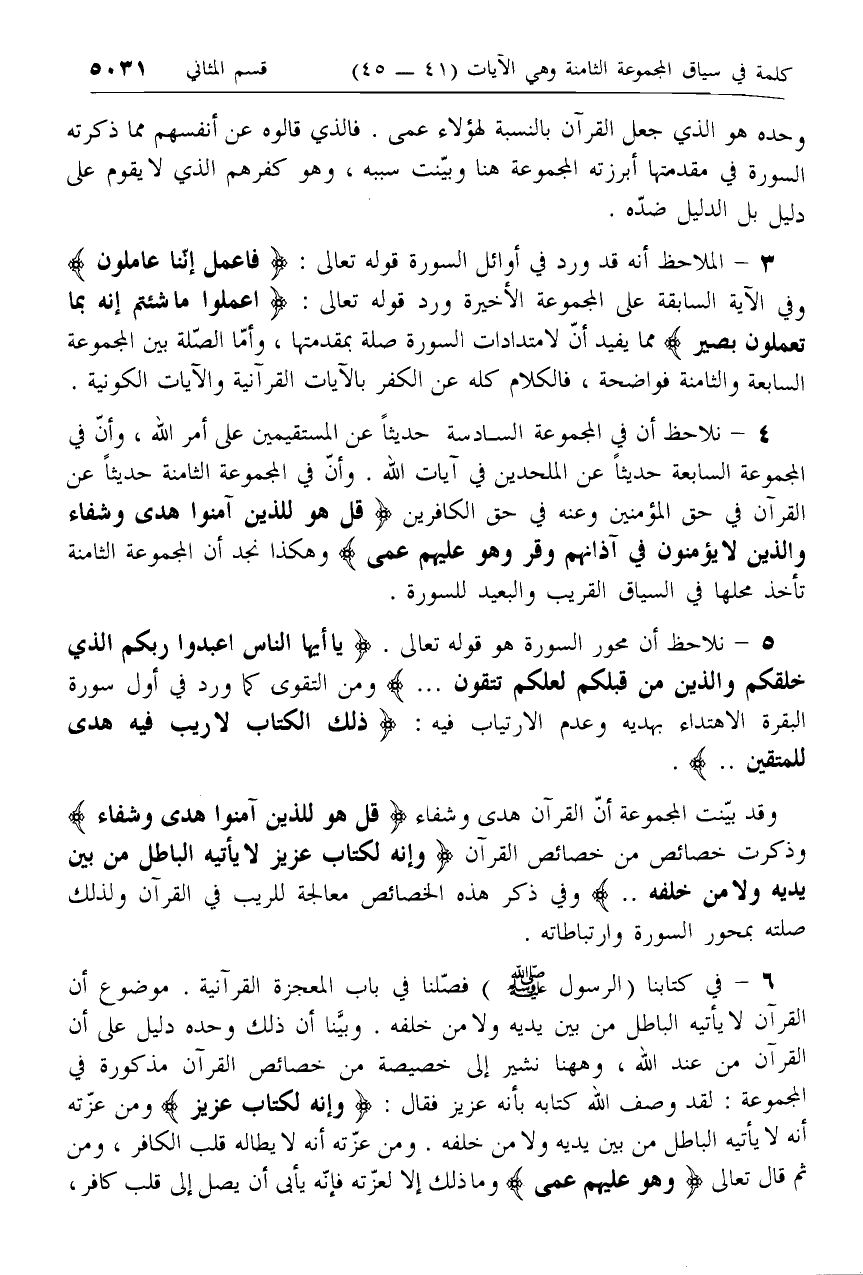 كلمة في سياق المجموعة الثامنة وهي الآيات (٤١ — ٤٥) قسم المثاني ٥٠٣١
وحده هو الذي جعل القرآن بالنسبة لهؤلاء عمى . فالذي قالوه عن أنفسهم مما ذكرته
السورة في مقدمتها أبرزته المجموعة هنا وبيّنت سببه ، وهو كفرهم الذي لا يقوم على
دليل بل الدليل ضدّه .
٣ – الملاحظ أنه قد ورد في أوائل السورة قوله تعالى : ﴿ فاعمل إنّنا عاملون ﴾
وفي الآية السابقة على المجموعة الأخيرة ورد قوله تعالى : ﴿ اعملوا ما شئتم إنه بما
تعملون بصير ﴾ مما يفيد أنّ لامتدادات السورة صلة بمقدمتها ، وأمّا الصّلة بين المجموعة
السابعة والثامنة فواضحة ، فالكلام كله عن الكفر بالآيات القرآنية والآيات الكونية .
٤ – نلاحظ أن في المجموعة السادسة حديثاً عن المستقيمين على أمر الله ، وأنّ في
المجموعة السابعة حديثاً عن الملحدين في آيات الله . وأنّ في المجموعة الثامنة حديثاً عن
القرآن في حق المؤمنين وعنه في حق الكافرين ﴿ قل هو للذين آمنوا هدى وشفاء
والذين لا يؤمنون في آذانهم وقر وهو عليهم عمى ﴾ وهكذا نجد أن المجموعة الثامنة
تأخذ محلها في السياق القريب والبعيد للسورة .
٥ – نلاحظ أن محور السورة هو قوله تعالى . ﴿ يا أيها الناس اعبدوا ربكم الذي
خلقكم والذين من قبلكم لعلكم تتقون ... ﴾ ومن التقوى كما ورد في أول سورة
البقرة الاهتداء بهديه وعدم الارتياب فيه : ﴿ ذلك الكتاب لا ريب فيه هدى
للمتقين .. ﴾ .
وقد بيّنت المجموعة أنّ القرآن هدى وشفاء ﴿ قل هو للذين آمنوا هدى وشفاء ﴾
وذكرت خصائص من خصائص القرآن ﴿ وإنه لكتاب عزيز لا يأتيه الباطل من بين
يديه ولا من خلفه .. ﴾ وفي ذكر هذه الخصائص معالجة للريب في القرآن ولذلك
صلته بمحور السورة وارتباطاته .
٦ – في كتابنا (الرسول ﷺ ) فصّلنا في باب المعجزة القرآنية . موضوع أن
القرآن لا يأتيه الباطل من بين يديه ولا من خلفه . وبيَّنا أن ذلك وحده دليل على أن
القرآن من عند الله ، وههنا نشير إلى خصيصة من خصائص القرآن مذكورة في
المجموعة : لقد وصف الله كتابه بأنه عزيز فقال : ﴿ وإنه لكتاب عزيز ﴾ ومن عزّته
أنه لا يأتيه الباطل من بين يديه ولا من خلفه . ومن عزّته أنه لا يطاله قلب الكافر ، ومن
ثم قال تعالى ﴿ وهو عليهم عمى ﴾ وما ذلك إلا لعزّته فإنّه يأبى أن يصل إلى قلب كافر ،